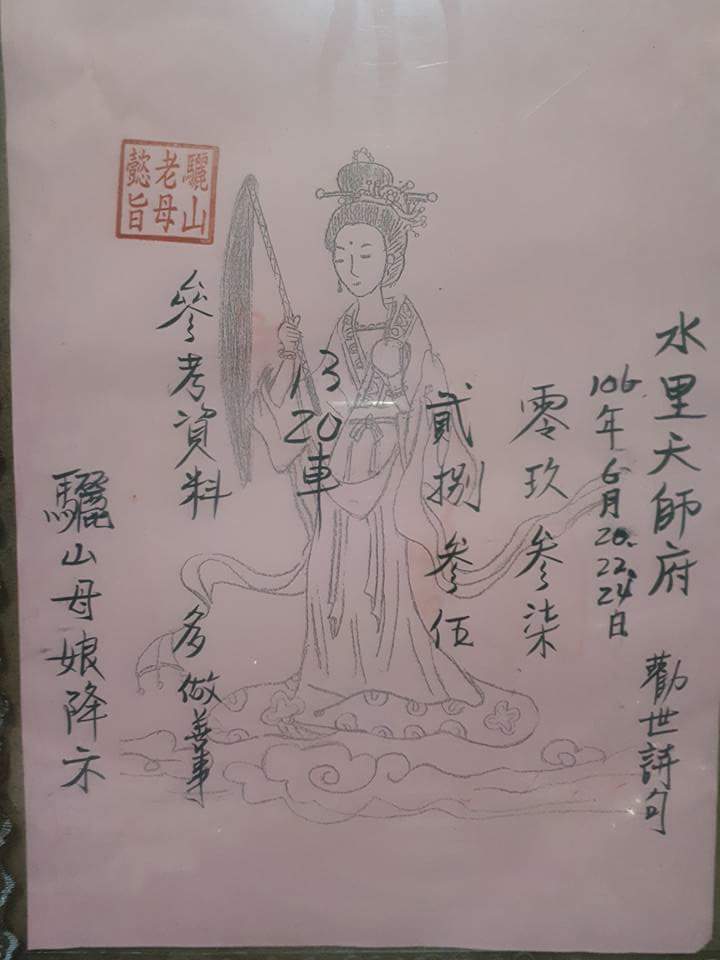 水里天師府
106年6月20.22.24日
勸世詩句
零玖參柒
貳捌參伍
13
20車
參考資料
多做善事
驪山母娘降示
驪山老母懿旨